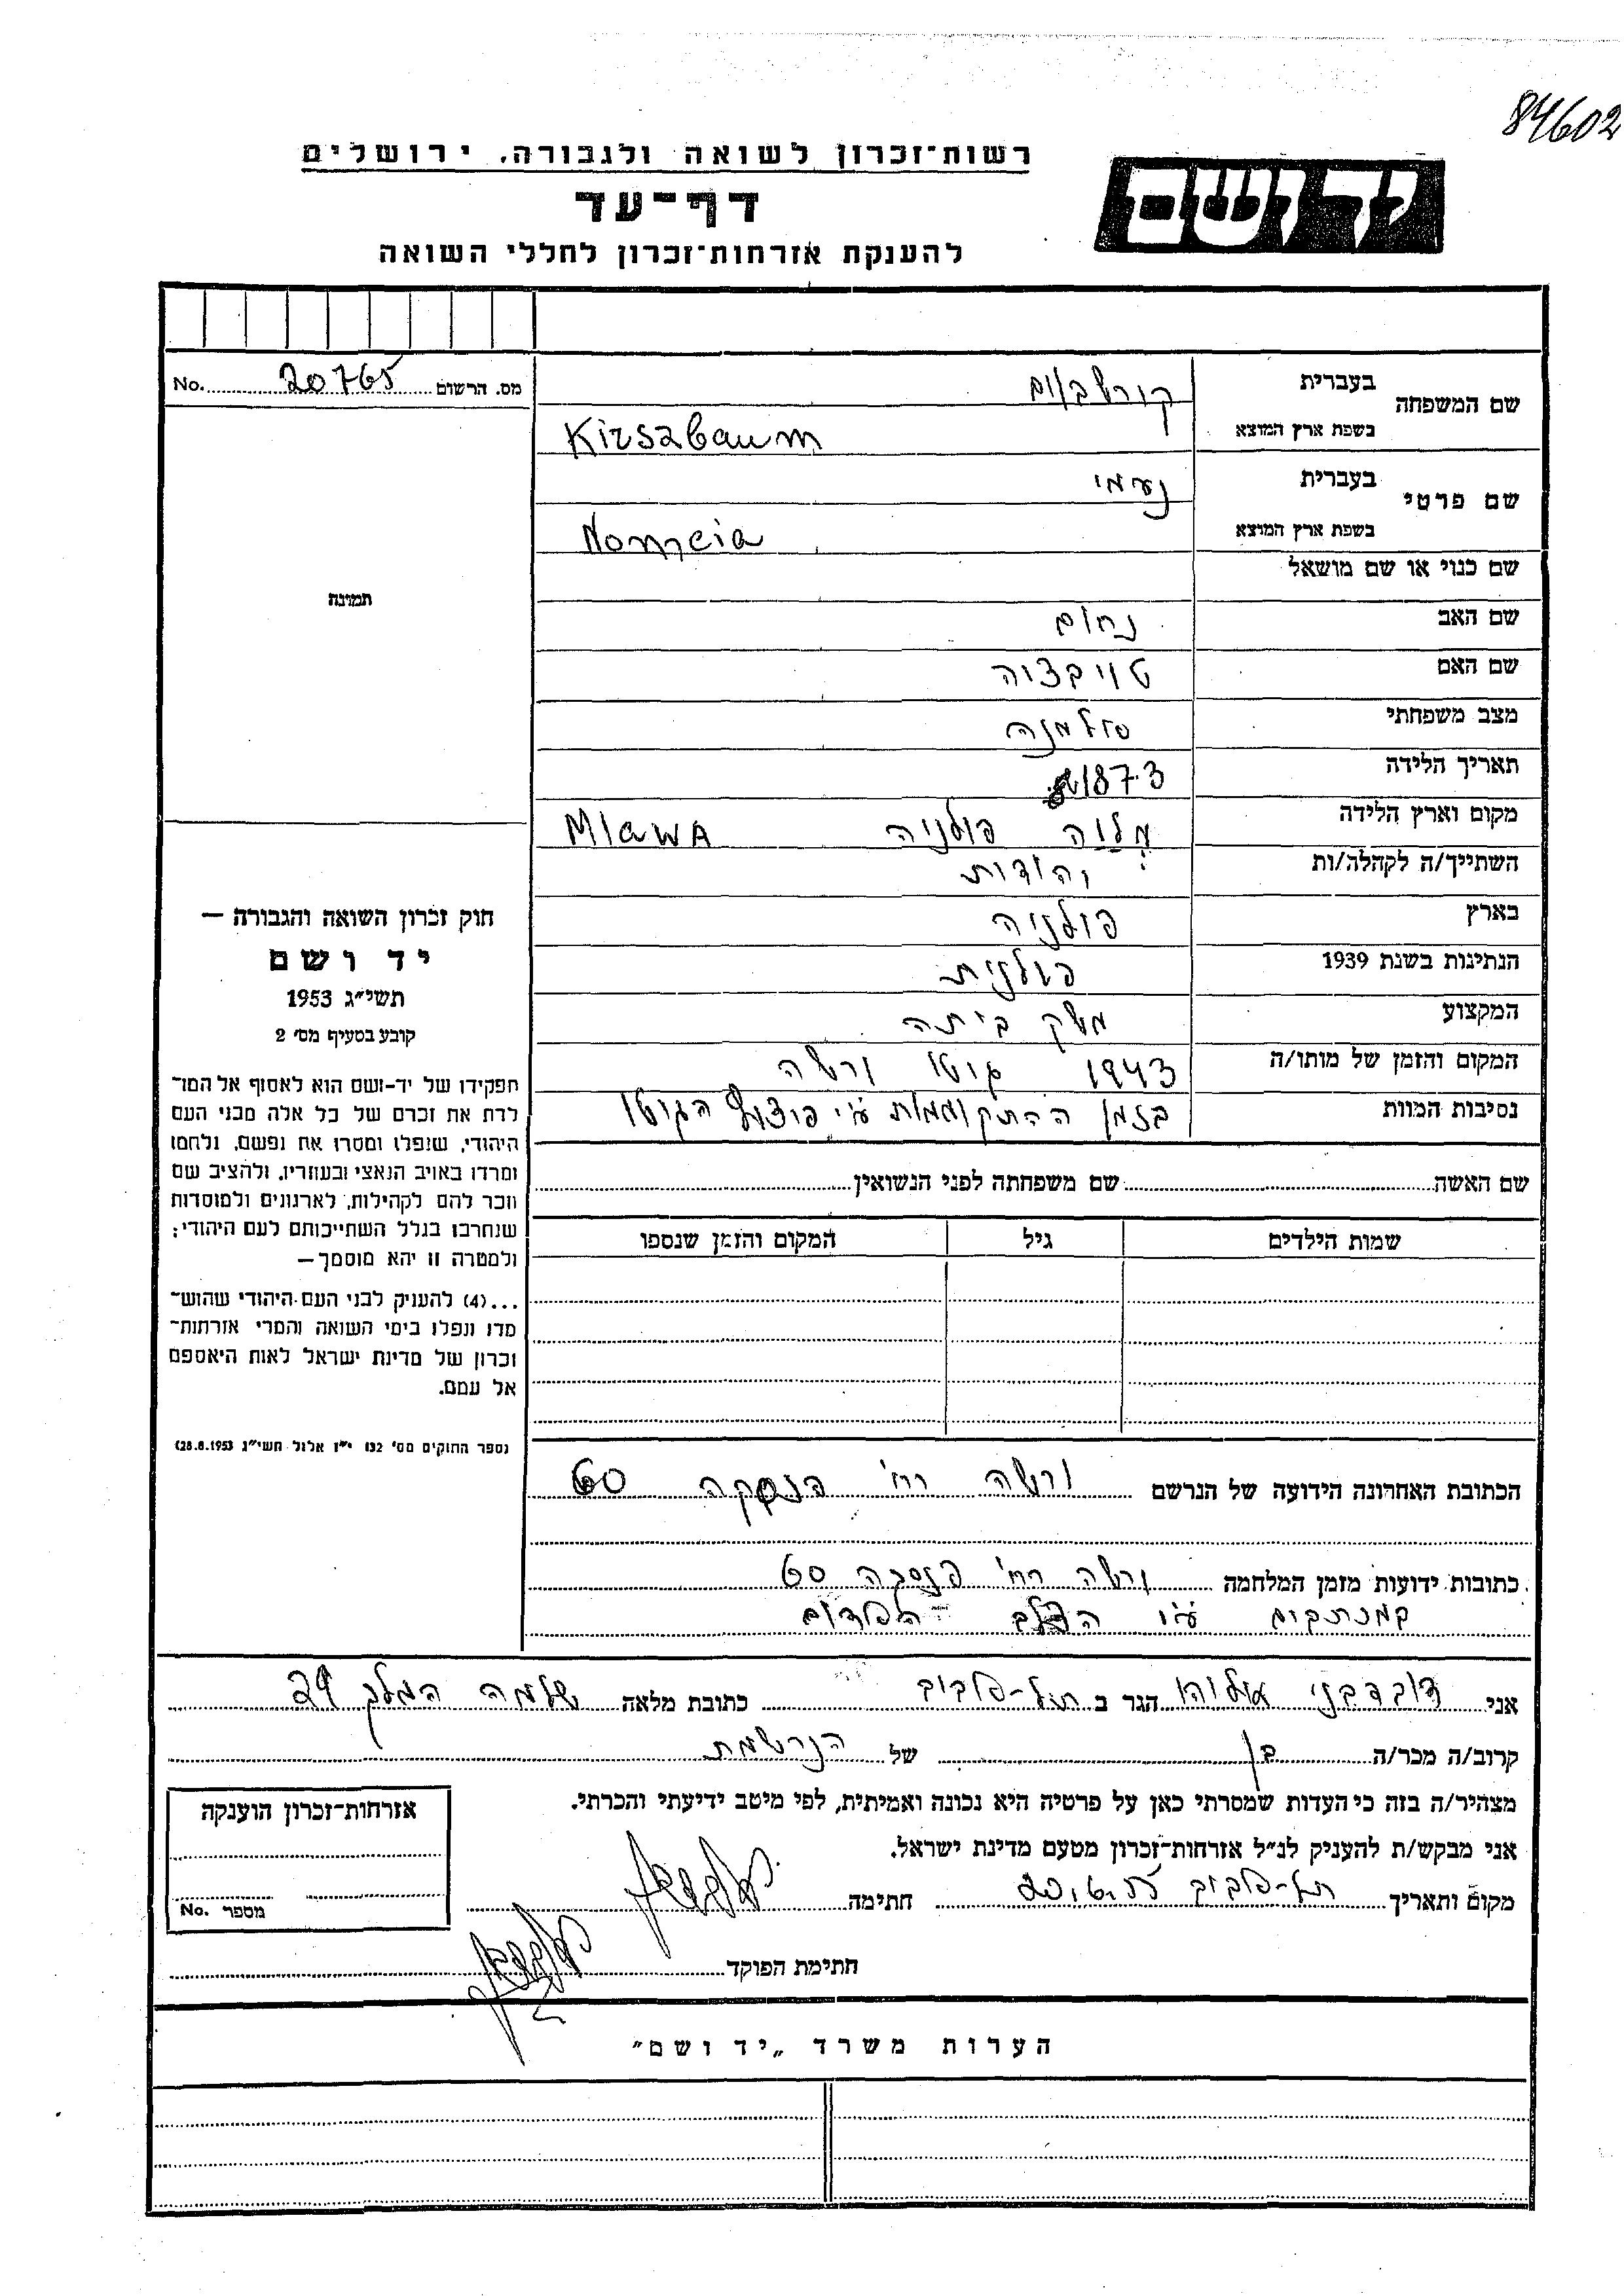 84602
רשות־זכרון לשואה ולגבורה, ירושלים
יד ושם
דף־עד
להענקת אזרחות־זכרון לחללי השואה
מס. הרשום 20765 No.
שם המשפחה בעברית קירשבאום
בשפת ארץ המוצא Kirszbaum
שם פרטי בעברית נעמי
בשפת ארץ המוצא
שם כנוי או שם מושאל
שם האב נחום
שם האם
מצב משפחתי אלמנה
תאריך הלידה 1873
מקום וארץ הלידה מלוה פולניה Mlawa
השתייך/ה לקהלה/ות יהודית
בארץ פולניה
הנתינות בשנת 1939 פולנית
המקצוע משק ביתה
המקום והזמן של מותו/ה 1943 גיטו ורשה
נסיבות המוות בזמן ההתקוממות ע״י פיצוץ הגיטו
תמונה
חוק זכרון השואה והגבורה —
יד ושם
תשי״ג 1953
קובע בסעיף מס׳ 2
תפקידו של יד-ושם הוא לאסוף אל המו־
לדת את זכרם של כל אלה מבני העם
היהודי, שנפלו ומסרו את נפשם, נלחמו
ומרדו באויב הנאצי ובעוזריו, ולהציב שם
וזכר להם לקהילות, לארגונים ולמוסדות
שנחרבו בגלל השתייכותם לעם היהודי;
ולמטרה זו יהא מוסמך —
...(4) להעניק לבני העם היהודי שהוש־
מדו ונפלו בימי השואה והמרי אזרחות־
זכרון של מדינת ישראל לאות היאספם
אל עמם.
(ספר החוקים מס׳ 132 י״ז אלול תשי״ג 28.8.1953)
שם האשה שם משפחתה לפני הנשואין
שמות הילדים גיל המקום והזמן שנספו
הכתובת האחרונה הידועה של הנרשם ורשה רח׳ 60
כתובות ידועות מזמן המלחמה ורשה רח׳ 60
אני דובדבני אליהו הגר ב תל-אביב כתובת מלאה שלמה המלך 29
קרוב/ה מכר/ה בן של הנרשמת
מצהיר/ה בזה כי העדות שמסרתי כאן על פרטיה היא נכונה ואמיתית, לפי מיטב ידיעתי והכרתי.
אני מבקש/ת להעניק לנ״ל אזרחות־זכרון מטעם מדינת ישראל.
מקום ותאריך תל-אביב 20.6.55 חתימה
חתימת הפוקד
אזרחות־זכרון הוענקה
מספר No.
הערות משרד „יד ושם״